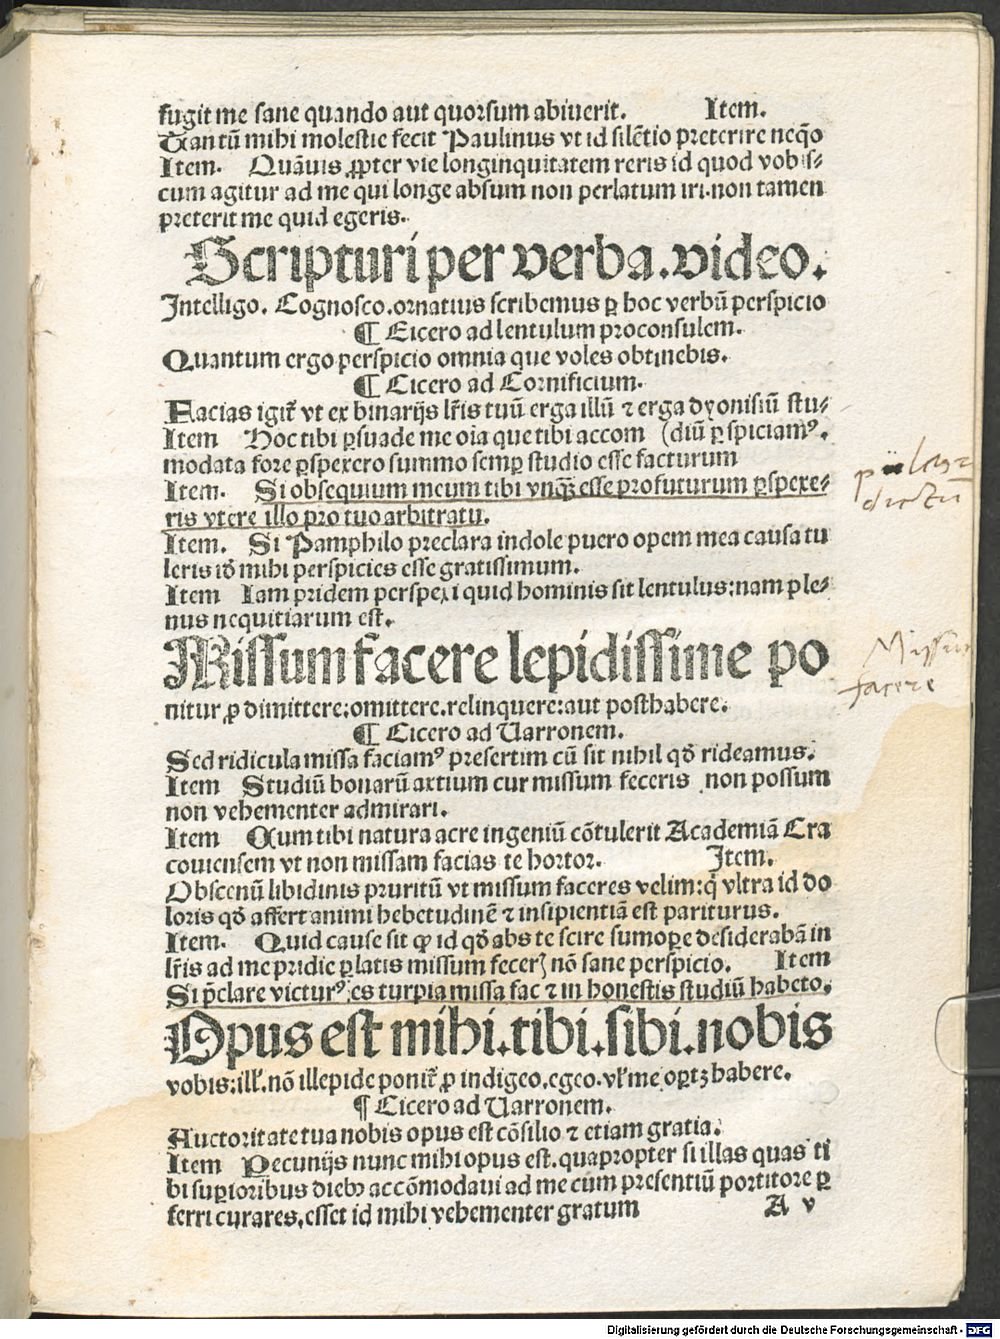 fugit me sane quando aut quorsum abiuerit. Item.
Tantũ mihi molestie fecit Paulinus vt id silẽtio preterire neq̃o
Item. Quãuis ꝓpter vie longinquitatem reris id quod vobis⸗
cum agitur ad me qui longe absum non perlatum iri.non tamen
preterit me quid egeris.
Scripturi per verba.video.
Intelligo. Cognosco.ornatius scribemus ꝑ hoc verbũ perspicio
¶ Cicero ad lentulum proconsulem.
Quantum ergo perspicio omnia que voles obtinebis.
¶ Cicero ad Cornificium.
Facias igit᷑ vt ex binarijs lr̃is tuũ erga illũ ⁊ erga dyonisiũ stu⸗
Item Hoc tibi ꝑsuade me oĩa que tibi accom (diũ ꝑspiciamꝰ.
modata fore ꝑspexero summo semꝑ studio esse facturum
Item. Si obsequium meum tibi vnqᷓ esse profuturum ꝑspexe⸗
ris vtere illo pro tuo arbitratu.
Item. Si Pamphilo preclara indole puero opem mea causa tu
leris id mihi perspicies esse gratissimum.
Item Iam pridem perspexi quid hominis sit lentulus:nam ple⸗
nus nequitiarum est.
Missum facere lepidissime po
nitur ꝓ dimittere:omittere.relinquere:aut posthabere.
¶ Cicero ad Varronem.
Sed ridicula missa faciamꝰ presertim cũ sit nihil qđ rideamus.
Item Studiũ bonarũ artium cur missum feceris non possum
non vehementer admirari.
Item Qum tibi natura acre ingeniũ cõtulerit Academiã Cra
couiensem vt non missam facias te hortor. Item.
Obscenũ libidinis pruritũ vt missum faceres velim:q̃ vltra id do
loris qđ affert animi hebetudinẽ ⁊ insipientiã est pariturus.
Item. Quid cause sit ꝙ id qđ abs te scire sumoꝑe desiderabã in
lr̃is ad me pridie ꝑlatis missum feceꝝ nõ sane perspicio. Item
Si p̃clare victurꝰ es turpia missa fac ⁊ in honestis studiũ habeto.
Opus est mihi.tibi.sibi.nobis
vobis:ill'.nõ illepide ponit᷑ ꝓ indigeo.egeo.vl'me oꝑtꝫ habere.
¶ Cicero ad Varronem.
Auctoritate tua nobis opus est cõsilio ⁊ etiam gratia.
Item Pecunijs nunc mihi opus est.quapropter si illas quas ti
bi suꝑioribus diebꝰ accõmodaui ad me cum presentiũ portitore ꝑ
ferri curares,esset id mihi vehementer gratum A v
dictũ
Missum
facere
Digitalisierung gefördert durch die Deutsche Forschungsgemeinschaft - DFG